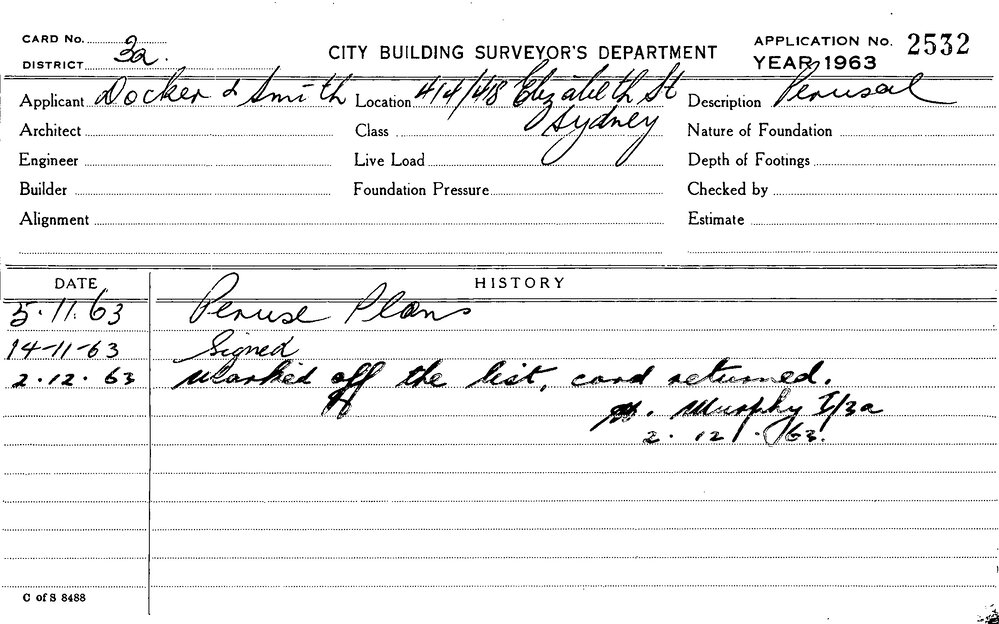 CARD No.
DISTRICT 3a.
CITY BUILDING SURVEYOR'S DEPARTMENT
APPLICATION No. 2532
YEAR 1963
Applicant Docker & Smith Location 414/418 Elizabeth St Description Perusal
Sydney
Architect Class Nature of Foundation
Engineer Live Load Depth of Footings
Builder Foundation Pressure Checked by
Alignment Estimate
DATE HISTORY
5.11.63 Peruse Plans
14-11-63 Signed
2.12.63 Marked off the list, card returned.
Murphy I/3a
2.12.63.
C of S 8488